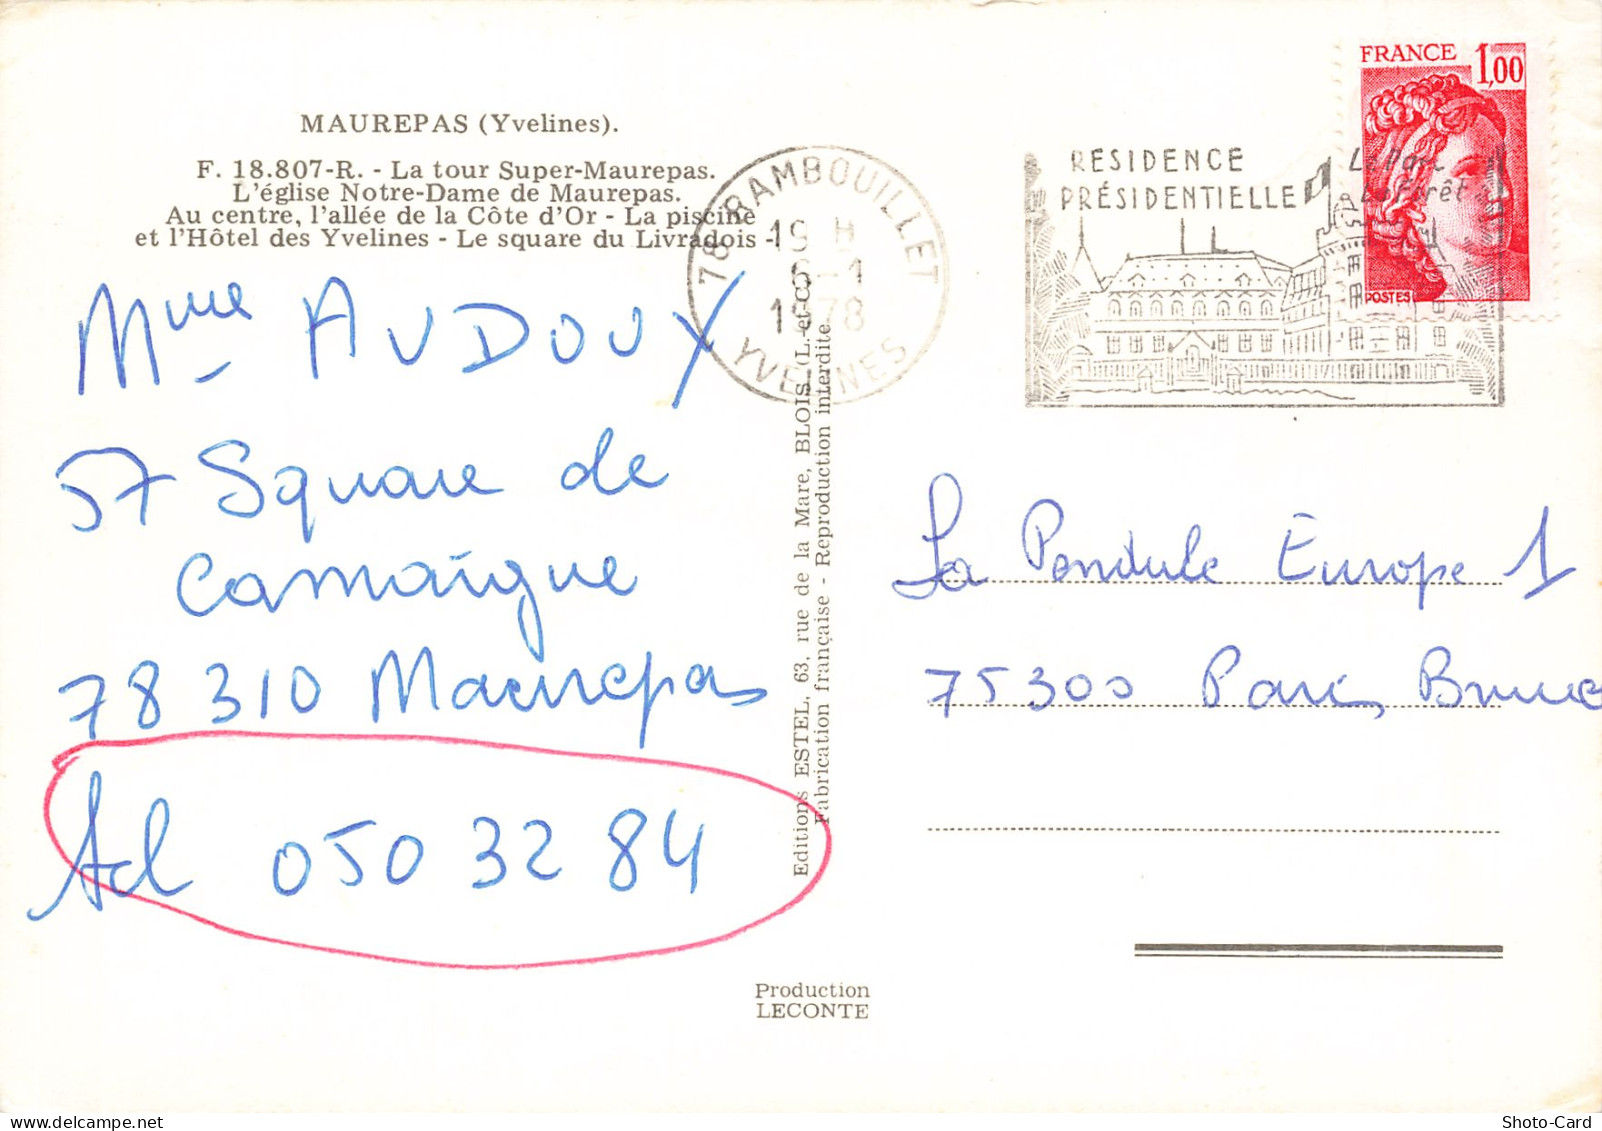 MAUREPAS (Yvelines).
F. 18.807-R. - La tour Super-Maurepas.
L'église Notre-Dame de Maurepas.
Au centre, l'allée de la Côte d'Or - La piscine
et l'Hôtel des Yvelines - Le square du Livradois -
Mme AUDOUX
57 Square de
Camaïgue
78 310 Maurepas
Ad 050 32 84
Editions ESTEL, 63, rue de la Mare, BLOIS (L.-et-C.)
Fabrication française - Reproduction interdite
Production
LECONTE
78 RAMBOUILLET
19 H
6-1
1978
YVELINES
RESIDENCE
PRÉSIDENTIELLE
Le Parc
La Forêt
FRANCE 1,00
POSTES
La Pendule Europe 1
75300 Paris Brune
Shoto-Card